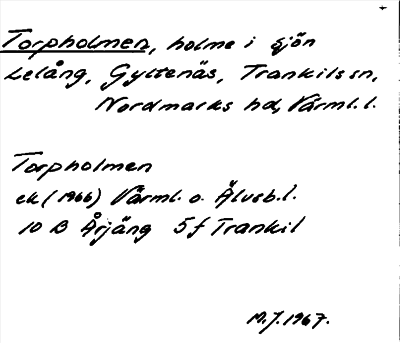 Torpholmen, holme i sjön
Lelång, Gyltenäs, Trankils sn,
Nordmarks hd, Värml. l.
Torpholmen
ek (1966) Värml. o. Älvsb. l.
10 B Årjäng 5f Trankil
M.J. 1967.